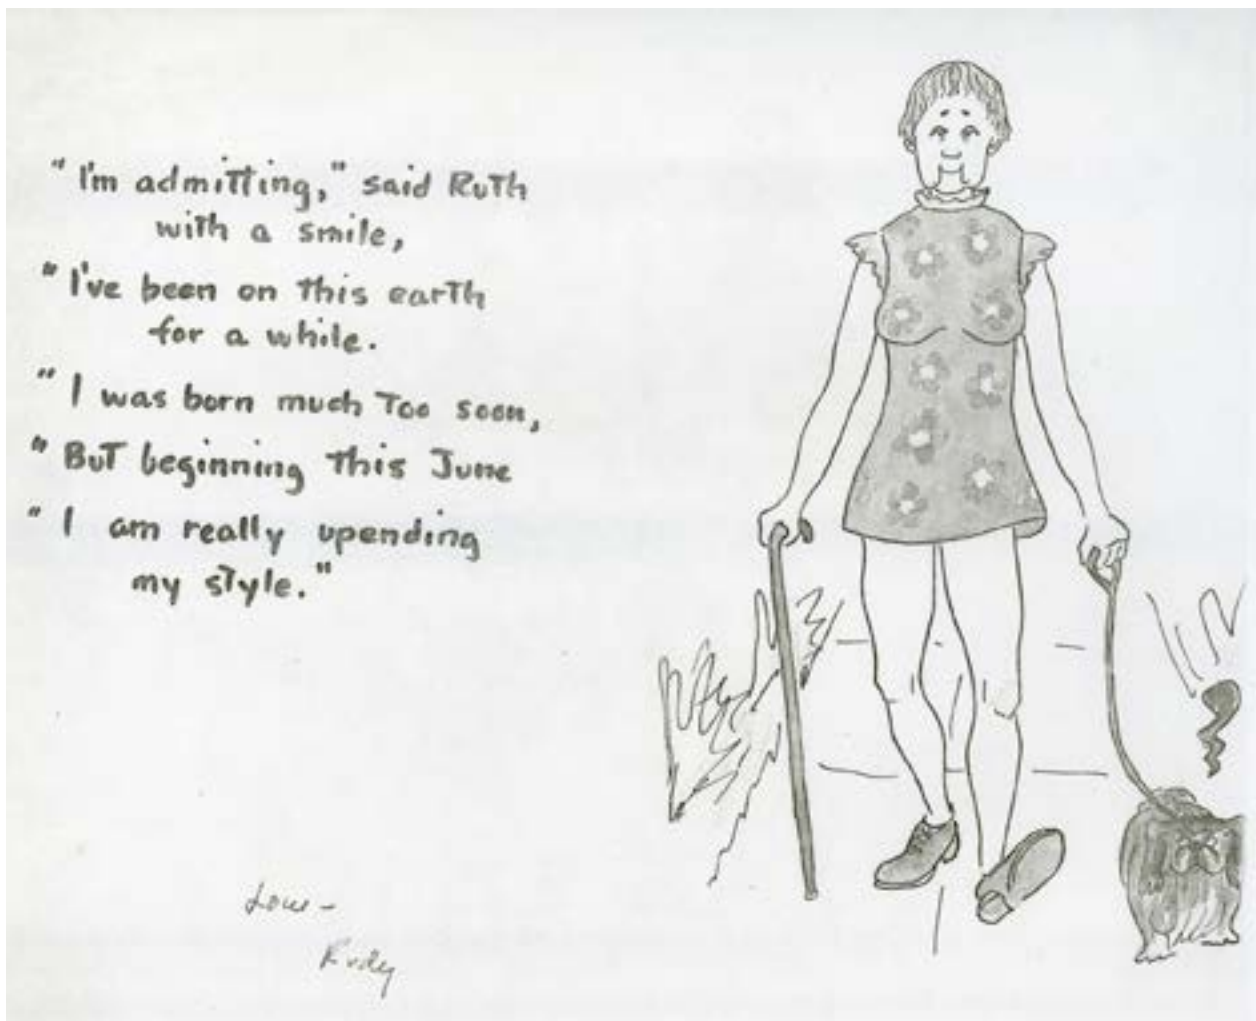 "I'm admitting," said Ruth
with a smile,
"I've been on this earth
for a while.
"I was born much too soon,
"But beginning this June
"I am really upending
my style."
Love -
Rudy